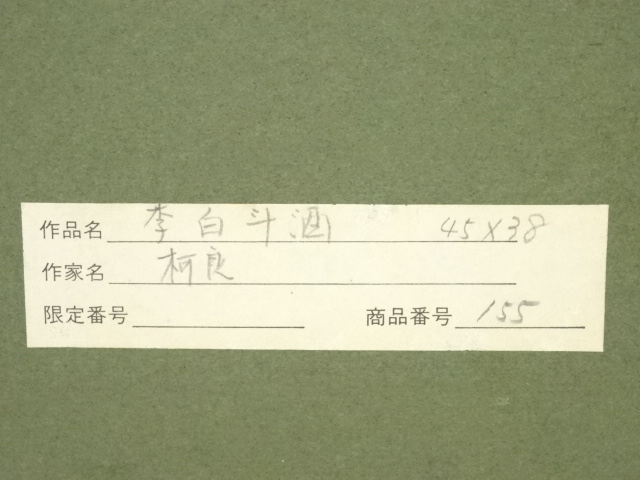 作品名 李白斗酒 45×38
作家名 柯良
限定番号 商品番号 155